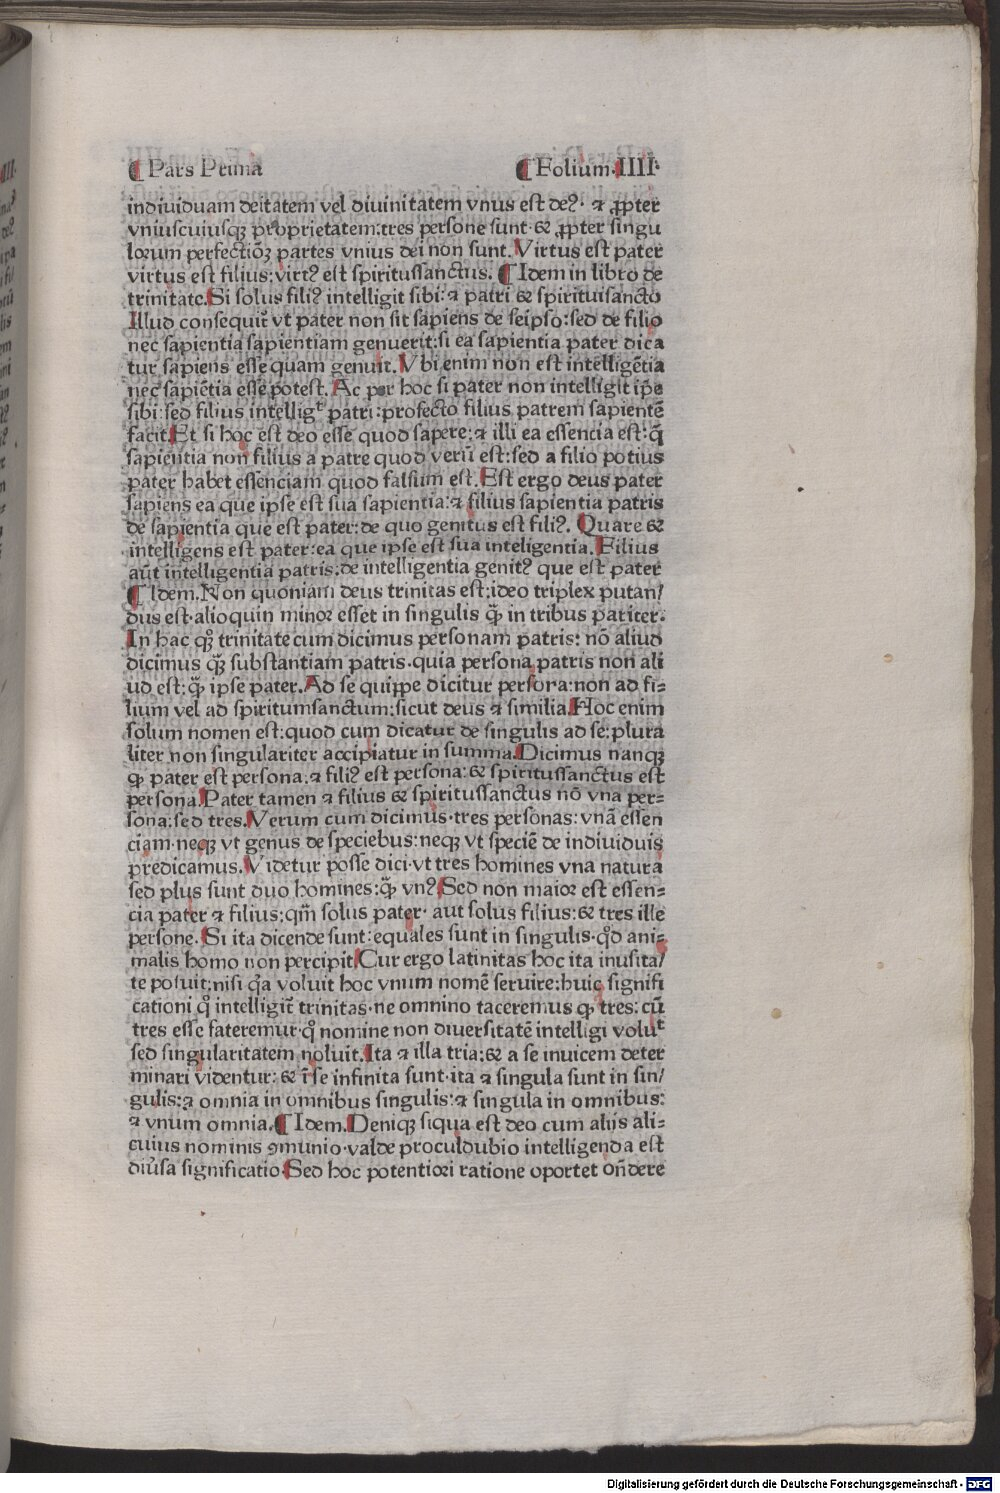 ¶ Pars Prima ¶ Folium.IIII.
indiuiduam deitatem vel diuinitatem vnus est deꝰ. ⁊ ꝓpter
vniuscuiusqꝫ proprietatem:tres persone sunt. & ꝓpter singu
lorum perfectiōꝫ partes vnius dei non sunt. Virtus est pater
virtus est filius:virtꝰ est spiritussanctus. ¶ Idem in libro de
trinitate. Si solus filiꝰ intelligit sibi:⁊ patri & spirituisancto
Illud consequit̄ vt pater non sit sapiens de seipso:sed de filio
nec sapientia sapientiam genuerit:si ea sapientia pater dica
tur sapiens esse quam genuit. Vbi enim non est intelligētia
nec sapiētia esse potest. Ac per hoc si pater non intelligit ip̄e
sibi:sed filius intelligᵗ patri:profecto filius patrem sapientē
facit. Et si hoc est deo esse quod sapere:⁊ illi ea essencia est:q̄
sapientia non filius a patre quod verū est:sed a filio potius
pater habet essenciam quod falsum est. Est ergo deus pater
sapiens ea que ipse est sua sapientia:⁊ filius sapientia patris
de sapientia que est pater:de quo genitus est filiꝰ. Quare &
intelligens est pater:ea que ipse est sua inteligentia. Filius
aūt intelligentia patris:de intelligentia genitꝰ que est pater
¶ Idem. Non quoniam deus trinitas est:ideo triplex putan/
dus est.alioquin minor esset in singulis q̄ꝫ in tribus pariter.
In hac qꝫ trinitate cum dicimus personam patris: nō aliud
dicimus q̄ꝫ substantiam patris.quia persona patris non ali
ud est:q̄ꝫ ipse pater. Ad se quippe dicitur persora:non ad fi⸗
lium vel ad spiritumsanctum:sicut deus ⁊ similia. Hoc enim
solum nomen est:quod cum dicatur de singulis ad se:plura
liter non singulariter accipiatur in summa. Dicimus nanqꝫ
ꝙ pater est persona:⁊ filiꝰ est persona:& spiritussanctus est
persona. Pater tamen ⁊ filius & spiritussanctus nō vna per⸗
sona:sed tres. Verum cum dicimus tres personas:vnā essen
ciam.neqꝫ vt genus de speciebus:neqꝫ vt speciē de indiuiduis
predicamus. Videtur posse dici.vt tres homines vna natura
sed plus sunt duo homines:q̄ꝫ vnꝰ. Sed non maior est essen⸗
cia pater ⁊ filius:qm̄ solus pater. aut solus filius:& tres ille
persone. Si ita dicende sunt:equales sunt in singulis.qd̓ ani⸗
malis homo non percipit. Cur ergo latinitas hoc ita inusita/
te posuit:nisi q̓a voluit hoc vnum nomē seruire:huic signifi
cationi q̊ intelligit̄ trinitas.ne omnino taceremus ꝙ tres: cū
tres esse fateremur.q̊ nomine non diuersitatē intelligi voluᵗ
sed singularitatem noluit. Ita ⁊ illa tria:& a se inuicem deter
minari videntur: & ī se infinita sunt.ita ⁊ singula sunt in sin/
gulis:⁊ omnia in omnibus singulis:⁊ singula in omnibus:
⁊ vnum omnia. ¶ Idem. Deniqꝫ siqua est deo cum aliis ali⸗
cuius nominis ꝯmunio.valde proculdubio intelligenda est
diu̓sa significatio. Sed hoc potentiori ratione oportet on̄dere